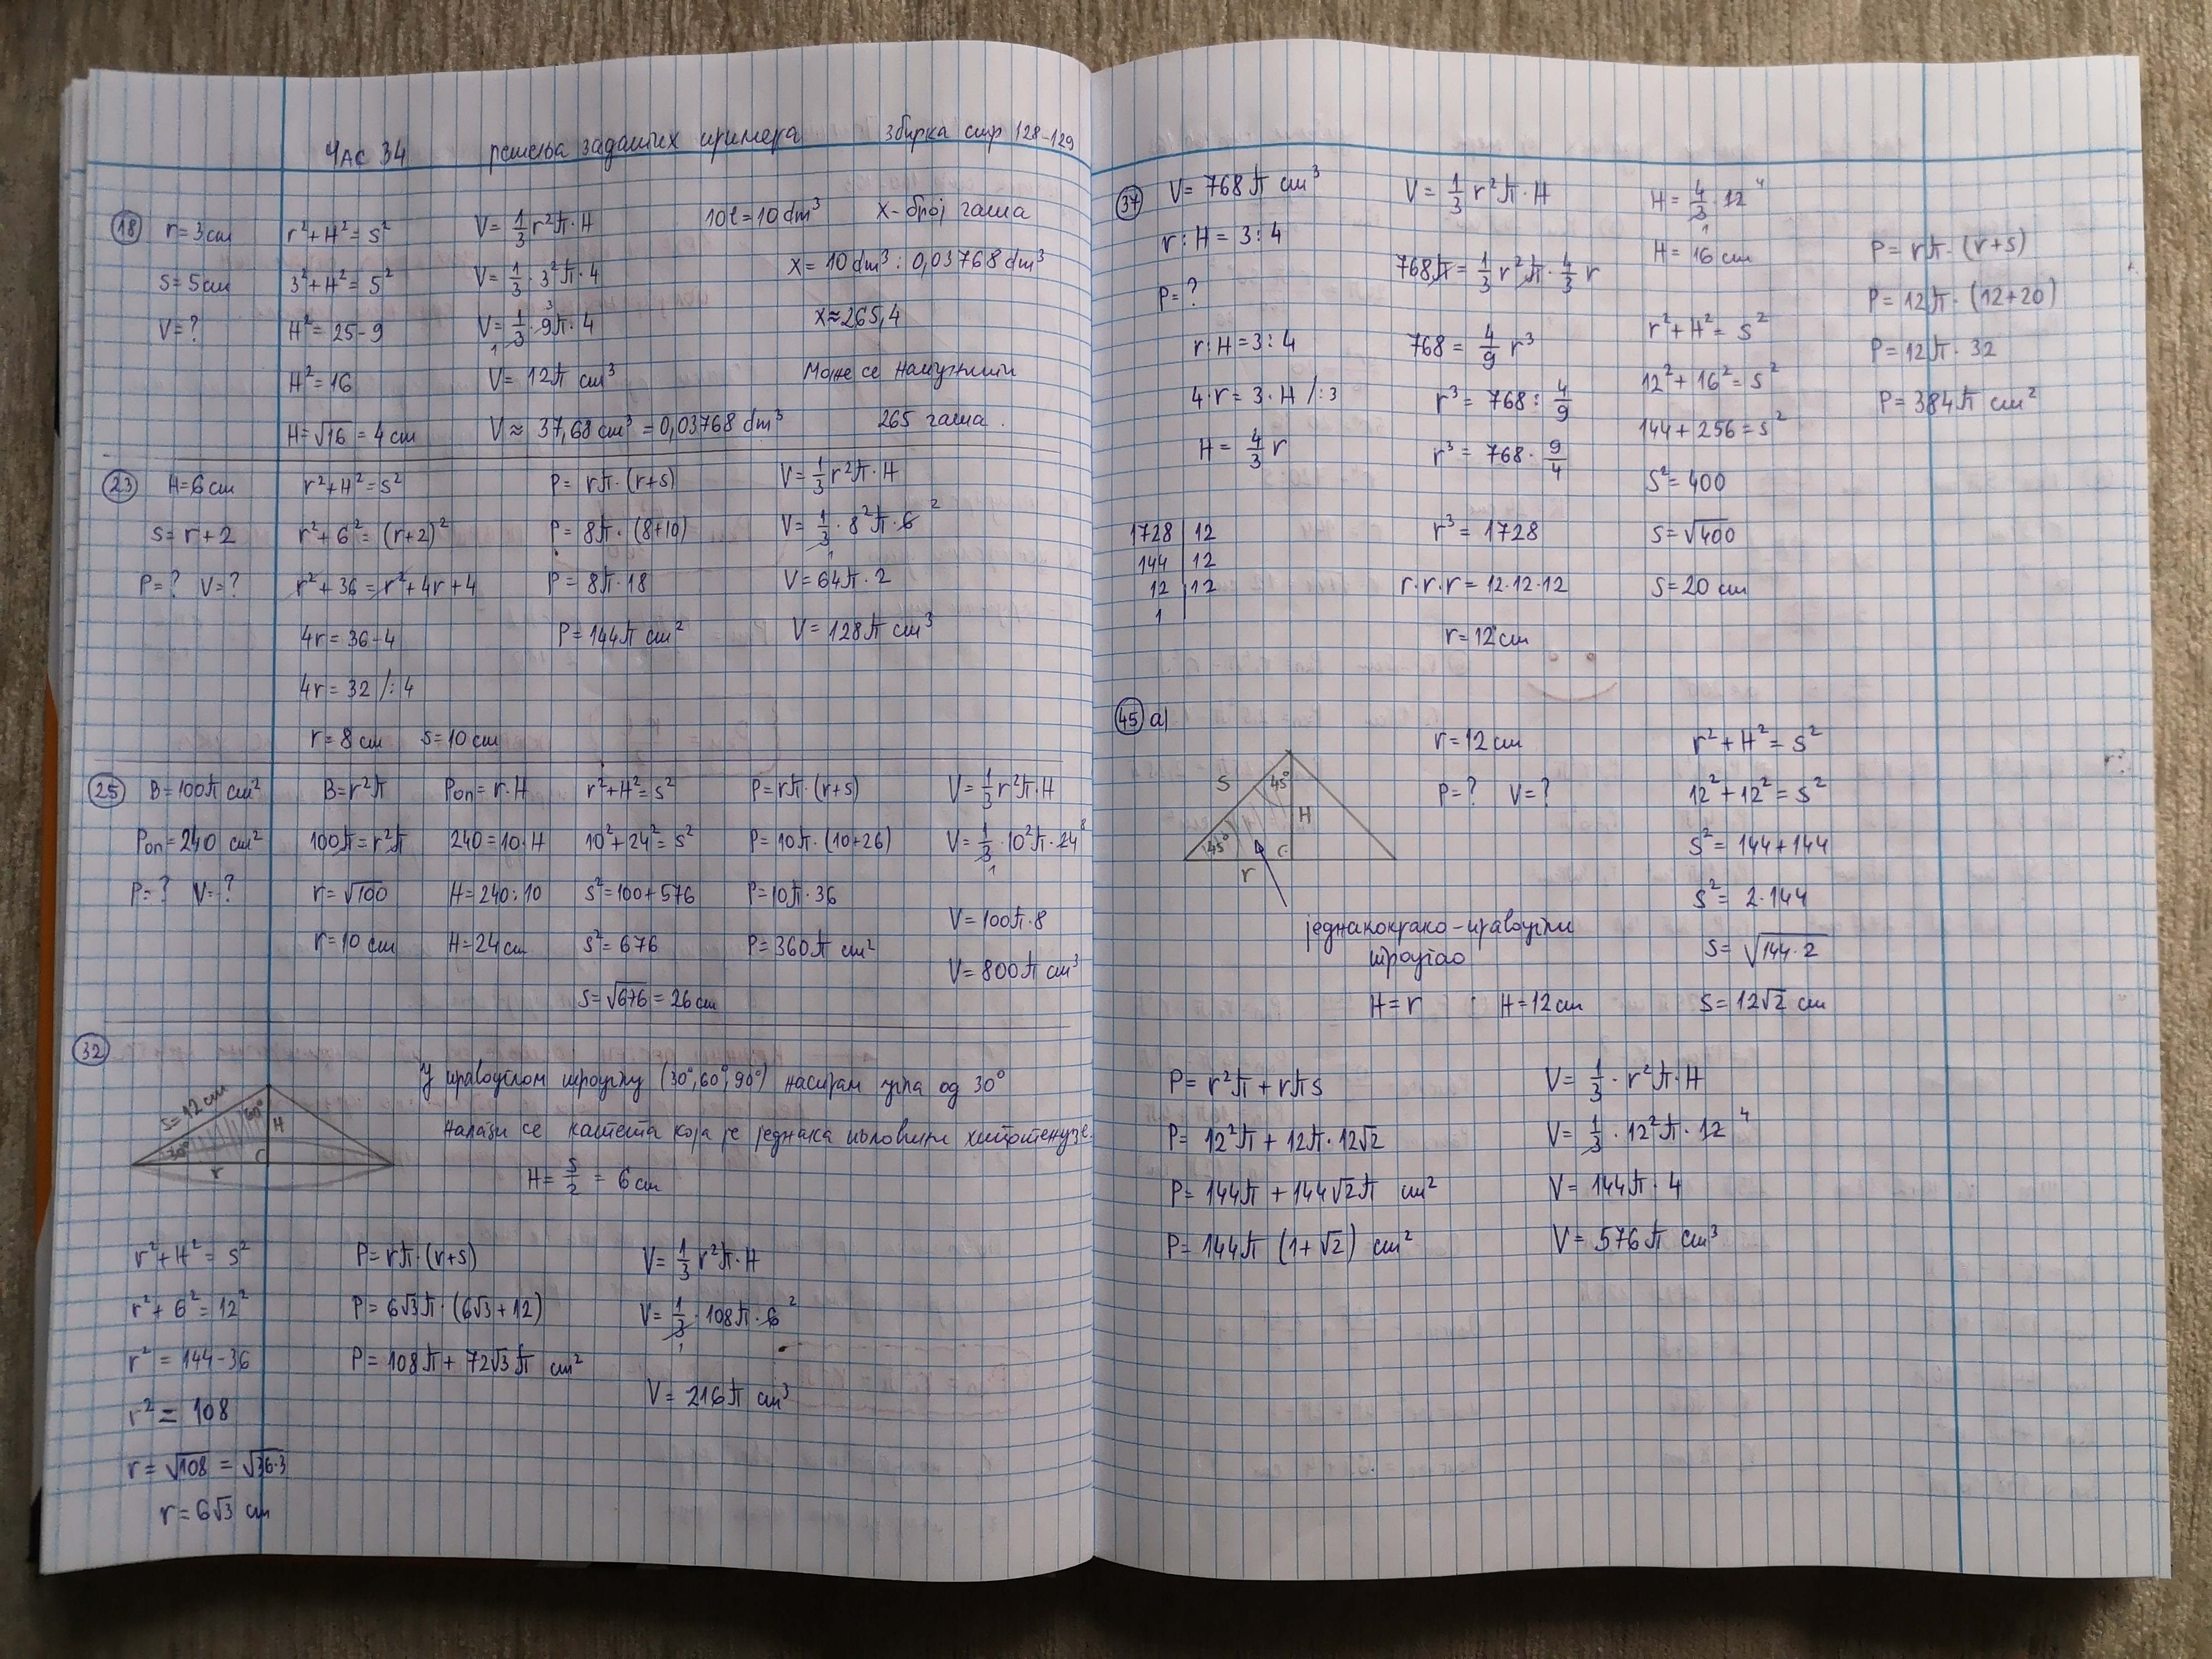 Час 34 решења задатих примера збирка стр 128-129
18
r = 3 cm
s = 5 cm
V = ?
r² + H² = s²
3² + H² = 5²
H² = 25 - 9
H² = 16
H = √16 = 4 cm
V = 1/3 r²π · H
V = 1/3 · 3²π · 4
V = 1/3 · 9π · 4
V = 12π cm³
V ≈ 37,68 cm³ = 0,03768 dm³
10l = 10 dm³ x - број чаша
x = 10 dm³ : 0,03768 dm³
x ≈ 265,4
Може се напунити
265 чаша.
23
H = 6 cm
s = r + 2
P = ? V = ?
r² + H² = s²
r² + 6² = (r+2)²
r² + 36 = r² + 4r + 4
4r = 36 - 4
4r = 32 /: 4
r = 8 cm s = 10 cm
P = rπ · (r+s)
P = 8π · (8+10)
P = 8π · 18
P = 144π cm²
V = 1/3 r²π · H
V = 1/3 · 8²π · 6
V = 64π · 2
V = 128π cm³
25
B = 100π cm²
Pоп = 240 cm²
P = ? V = ?
B = r²π
100π = r²π
r = √100
r = 10 cm
Pоп = r · H
240 = 10 · H
H = 240 : 10
H = 24 cm
r² + H² = s²
10² + 24² = s²
s² = 100 + 576
s² = 676
s = √676 = 26 cm
P = rπ · (r+s)
P = 10π · (10+26)
P = 10π · 36
P = 360π cm²
V = 1/3 r²π · H
V = 1/3 · 10²π · 24 8
V = 100π · 8
V = 800π cm³
32
s = 12 cm
60°
H
30°
r
У правоуглом троуглу (30°, 60°, 90°) наспрам угла од 30°
налази се катета која је једнака половини хипотенузе.
H = s/2 = 6 cm
r² + H² = s²
r² + 6² = 12²
r² = 144 - 36
r² = 108
r = √108 = √36·3
r = 6√3 cm
P = rπ · (r+s)
P = 6√3π · (6√3 + 12)
P = 108π + 72√3π cm²
V = 1/3 r²π · H
V = 1/3 · 108π · 6 2
V = 216π cm³
37
V = 768π cm³
r : H = 3 : 4
P = ?
r : H = 3 : 4
4 · r = 3 · H /: 3
H = 4/3 r
1728 | 12
144 | 12
12 | 12
1
V = 1/3 r²π · H
768π = 1/3 r²π · 4/3 r
768 = 4/9 r³
r³ = 768 : 4/9
r³ = 768 · 9/4
r³ = 1728
r · r · r = 12 · 12 · 12
r = 12 cm
H = 4/3 · 12 4
H = 16 cm
r² + H² = s²
12² + 16² = s²
144 + 256 = s²
s² = 400
s = √400
s = 20 cm
P = rπ · (r+s)
P = 12π · (12+20)
P = 12π · 32
P = 384π cm²
45 а)
s
45°
H
45°
r
једнакокрако-правоугли
троугао
H = r H = 12 cm
r = 12 cm
P = ? V = ?
r² + H² = s²
12² + 12² = s²
s² = 144 + 144
s² = 2 · 144
s = √144·2
s = 12√2 cm
P = r²π + rπs
P = 12²π + 12π · 12√2
P = 144π + 144√2π cm²
P = 144π (1+√2) cm²
V = 1/3 · r²π · H
V = 1/3 · 12²π · 12 4
V = 144π · 4
V = 576π cm³